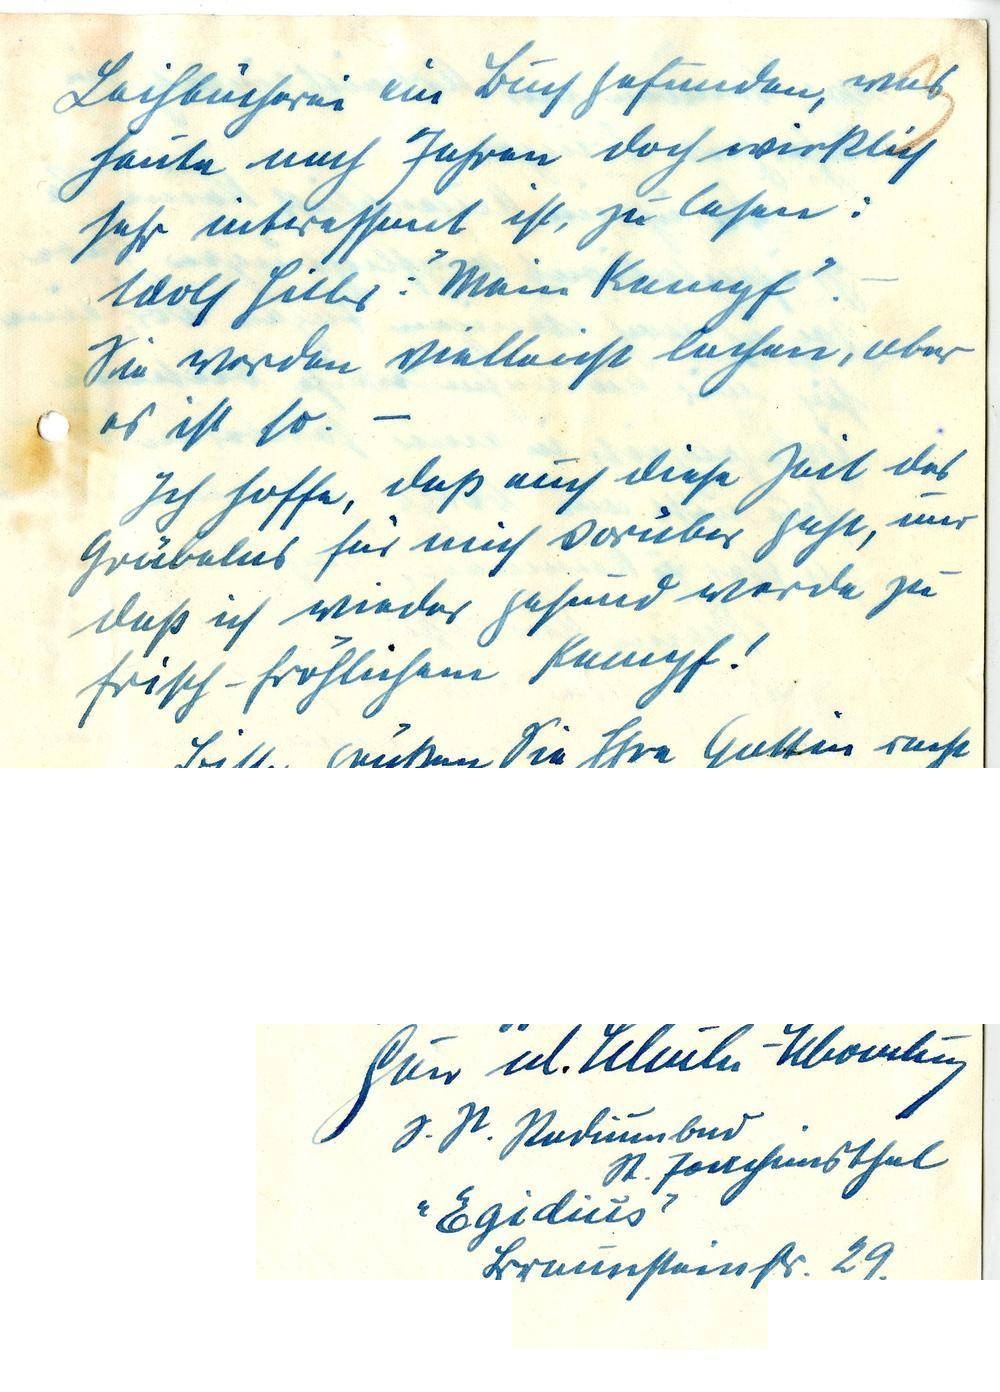 Leihbücherei ein Buch gefunden, was
heute nach Jahren doch wirklich
sehr interessant ist, zu lesen:
Adolf Hitler: "Mein Kampf". —
Sie werden vielleicht lachen, aber
es ist so. —
Ich hoffe, daß auch diese Zeit des
Grübelns für mich vorüber geht, nur
daß ich wieder gesund werde zu
frisch-fröhlichem Kampf!
Bitte grüßen Sie Ihre Gattin recht
z. Zt. Radiumbad
St. Joachimsthal
"Egidius"
Braunsteinstr. 29.